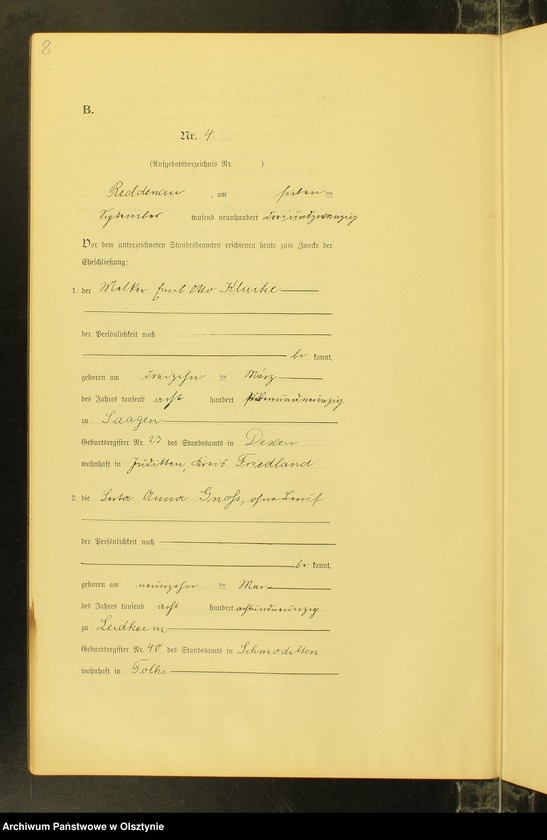 8
B.
Nr. 4
(Aufgebotsverzeichnis Nr. )
Reddenau, am sieben ten
September tausend neunhundert dreiundzwanzig
Vor dem unterzeichneten Standesbeamten erschienen heute zum Zwecke der
Eheschließung:
1. der Melker Emil Otto
der Persönlichkeit nach
be kannt,
geboren am dreizehn ten März
des Jahres tausend acht hundert siebenundneunzig
zu Saagen
Geburtsregister Nr. 27 des Standesamts in Dexen
wohnhaft in Juditten, Kreis Friedland
2. die Berta Anna Gnoß, ohne Beruf
der Persönlichkeit nach
be kannt,
geboren am neunzehn ten Mai
des Jahres tausend acht hundert achtundneunzig
zu
Geburtsregister Nr. 40 des Standesamts in Schmoditten
wohnhaft in Tolks
Archiwum Państwowe w Olsztynie